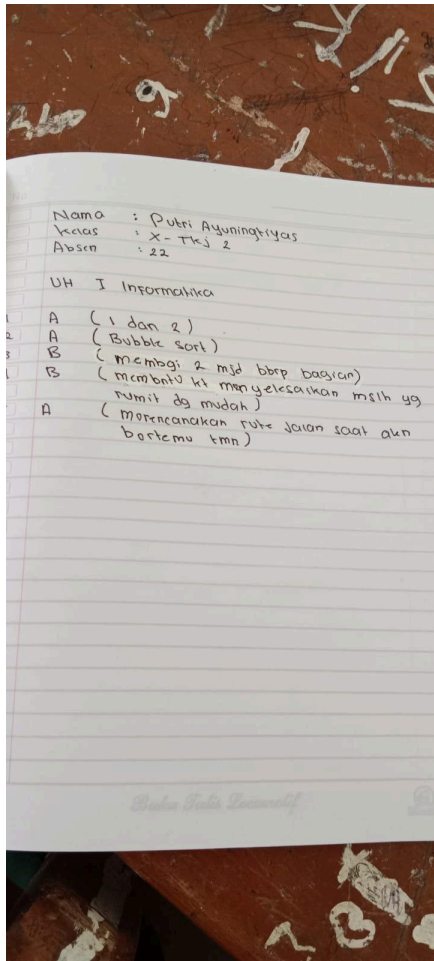 No
Nama : Putri Ayuningtiyas
Kelas : X - Tkj 2
Absen : 22
UH I Informatika
1 A ( 1 dan 2 )
2 A ( Bubble sort )
3 B ( membagi 2 mjd bbrp bagian)
B ( membntu kt menyelesaikan mslh yg
rumit dg mudah )
A ( merencanakan rute jalan saat akn
bertemu tmn )